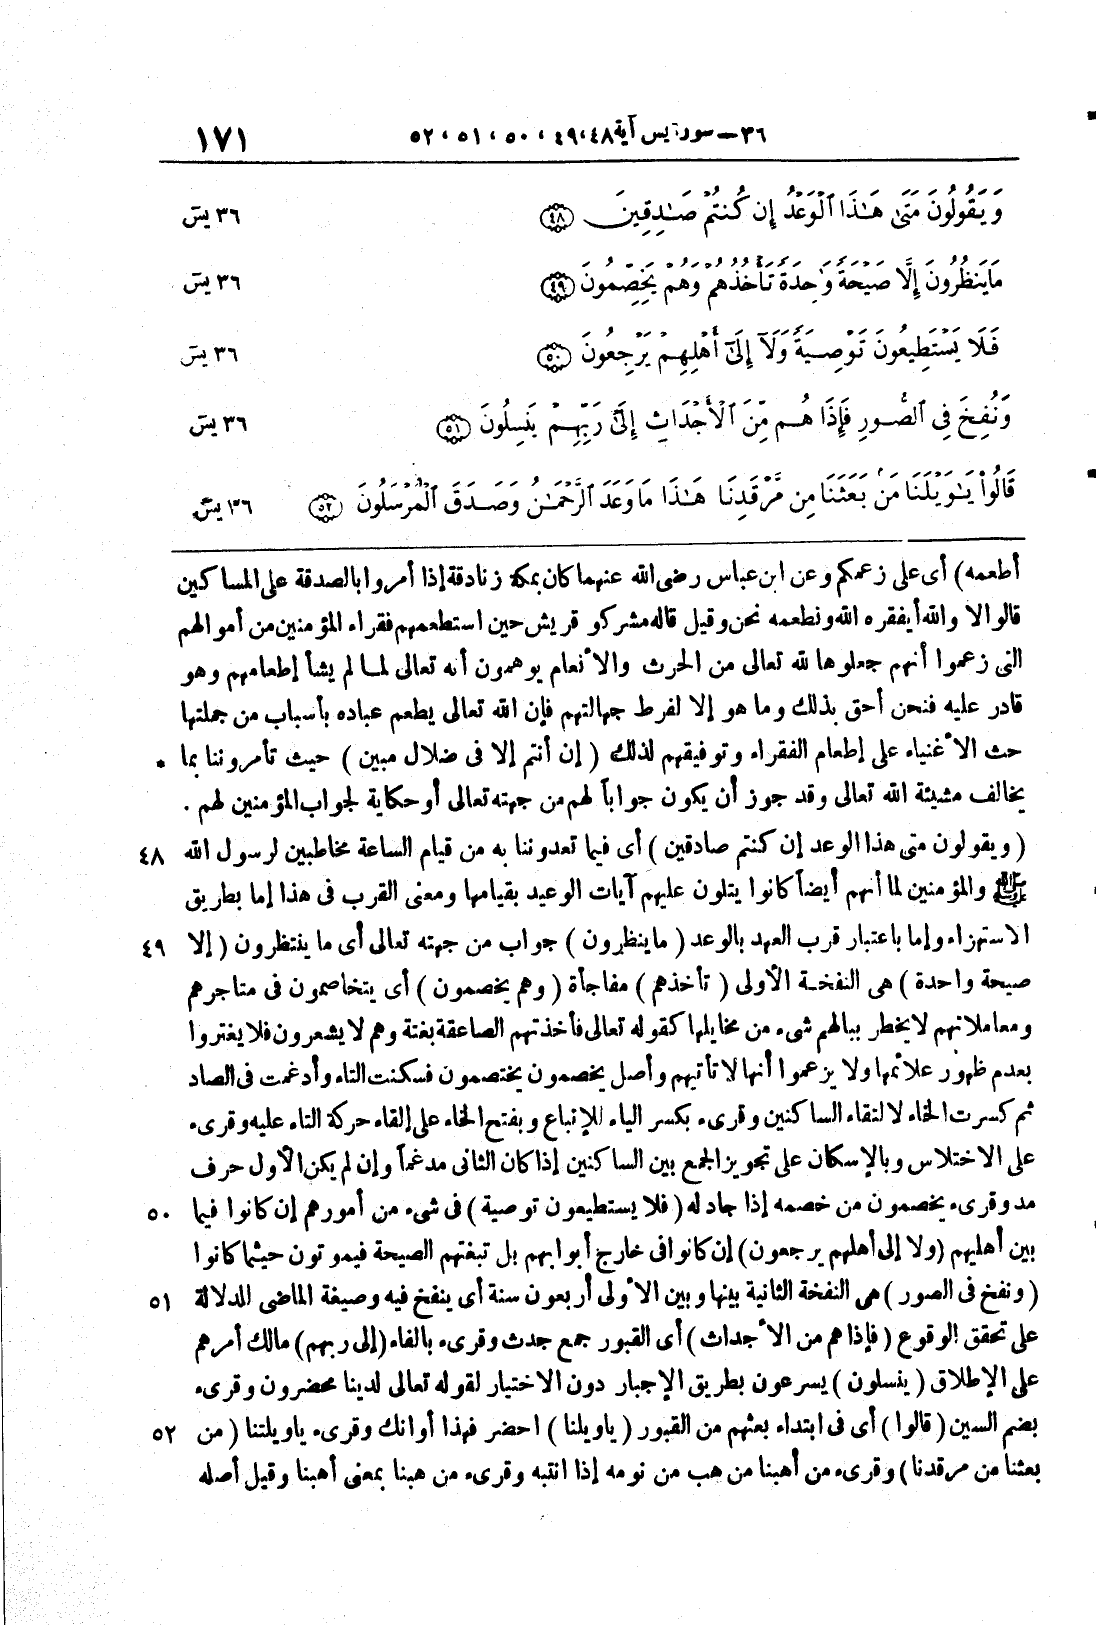 ٣٦ — سورة يس آية ٤٨، ٤٩، ٥٠، ٥١، ٥٢
١٧١
وَيَقُولُونَ مَتَىٰ هَـٰذَا ٱلْوَعْدُ إِن كُنتُمْ صَـٰدِقِينَ ﴿٤٨﴾ ٣٦ يسٓ
مَا يَنظُرُونَ إِلَّا صَيْحَةً وَٰحِدَةً تَأْخُذُهُمْ وَهُمْ يَخِصِّمُونَ ﴿٤٩﴾ ٣٦ يسٓ
فَلَا يَسْتَطِيعُونَ تَوْصِيَةً وَلَآ إِلَىٰٓ أَهْلِهِمْ يَرْجِعُونَ ﴿٥٠﴾ ٣٦ يسٓ
وَنُفِخَ فِى ٱلصُّورِ فَإِذَا هُم مِّنَ ٱلْأَجْدَاثِ إِلَىٰ رَبِّهِمْ يَنسِلُونَ ﴿٥١﴾ ٣٦ يسٓ
قَالُوا۟ يَـٰوَيْلَنَا مَنۢ بَعَثَنَا مِن مَّرْقَدِنَا هَـٰذَا مَا وَعَدَ ٱلرَّحْمَـٰنُ وَصَدَقَ ٱلْمُرْسَلُونَ ﴿٥٢﴾ ٣٦ يسٓ
أطعمه) أى على زعمكم وعن ابن عباس رضى الله عنهما كان بمكة زنادقة إذا أمروا بالصدقة على المساكين
قالوا لا والله أيفقره الله ونطعمه نحن وقيل قاله مشركو قريش حين استطعمهم فقراء المؤمنين من أموالهم
التى زعموا أنهم جعلوها لله تعالى من الحرث والأنعام يوهمون أنه تعالى لما لم يشأ إطعامهم وهو
قادر عليه فنحن أحق بذلك وما هو إلا لفرط جهالتهم فإن الله تعالى يطعم عباده بأسباب من جملتها
حث الأغنياء على إطعام الفقراء وتوفيقهم لذلك (إن أنتم إلا فى ضلال مبين) حيث تأمروننا بما *
يخالف مشيئة الله تعالى وقد جوز أن يكون جواباً لهم من جهته تعالى أو حكاية لجواب المؤمنين لهم .
(ويقولون متى هذا الوعد إن كنتم صادقين) أى فيما تعدوننا به من قيام الساعة مخاطبين لرسول الله ٤٨
ﷺ والمؤمنين لما أنهم أيضاً كانوا يتلون عليهم آيات الوعيد بقيامها ومعنى القرب فى هذا إما بطريق
الاستهزاء وإما باعتبار قرب العهد بالوعد (ما ينظرون) جواب من جهته تعالى أى ما ينتظرون (إلا ٤٩
صيحة واحدة) هى النفخة الأولى (تأخذهم) مفاجأة (وهم يخصمون) أى يتخاصمون فى متاجرهم
ومعاملاتهم لا يخطر ببالهم شىء من مخايلها كقوله تعالى فأخذتهم الصاعقة بغتة وهم لا يشعرون فلا يغتروا
بعدم ظهور علائمها ولا يزعموا أنها لا تأتيهم وأصل يخصمون يختصمون فسكنت التاء وأدغمت فى الصاد
ثم كسرت الخاء لالتقاء الساكنين وقرىء بكسر الياء للإتباع وبفتح الخاء على إلقاء حركة التاء عليه وقرىء
على الاختلاس وبالإسكان على تجويز الجمع بين الساكنين إذا كان الثانى مدغماً وإن لم يكن الأول حرف
مد وقرىء يخصمون من خصمه إذا جادله (فلا يستطيعون توصية) فى شىء من أمورهم إن كانوا فيما ٥٠
بين أهليهم (ولا إلى أهلهم يرجعون) إن كانوا فى خارج أبوابهم بل تبغتهم الصيحة فيموتون حيثما كانوا
(ونفخ فى الصور) هى النفخة الثانية بينها وبين الأولى أربعون سنة أى ينفخ فيه وصيغة الماضى للدلالة ٥١
على تحقق الوقوع (فإذا هم من الأجداث) أى القبور جمع جدث وقرىء بالفاء (إلى ربهم) مالك أمرهم
على الإطلاق (ينسلون) يسرعون بطريق الإجبار دون الاختيار لقوله تعالى لدينا محضرون وقرىء
بضم السين (قالوا) أى فى ابتداء بعثهم من القبور (ياويلنا) احضر فهذا أوانك وقرىء ياويلتنا (من ٥٢
بعثنا من مرقدنا) وقرىء من أهبنا من هب من نومه إذا انتبه وقرىء من هبنا بمعنى أهبنا وقيل أصله